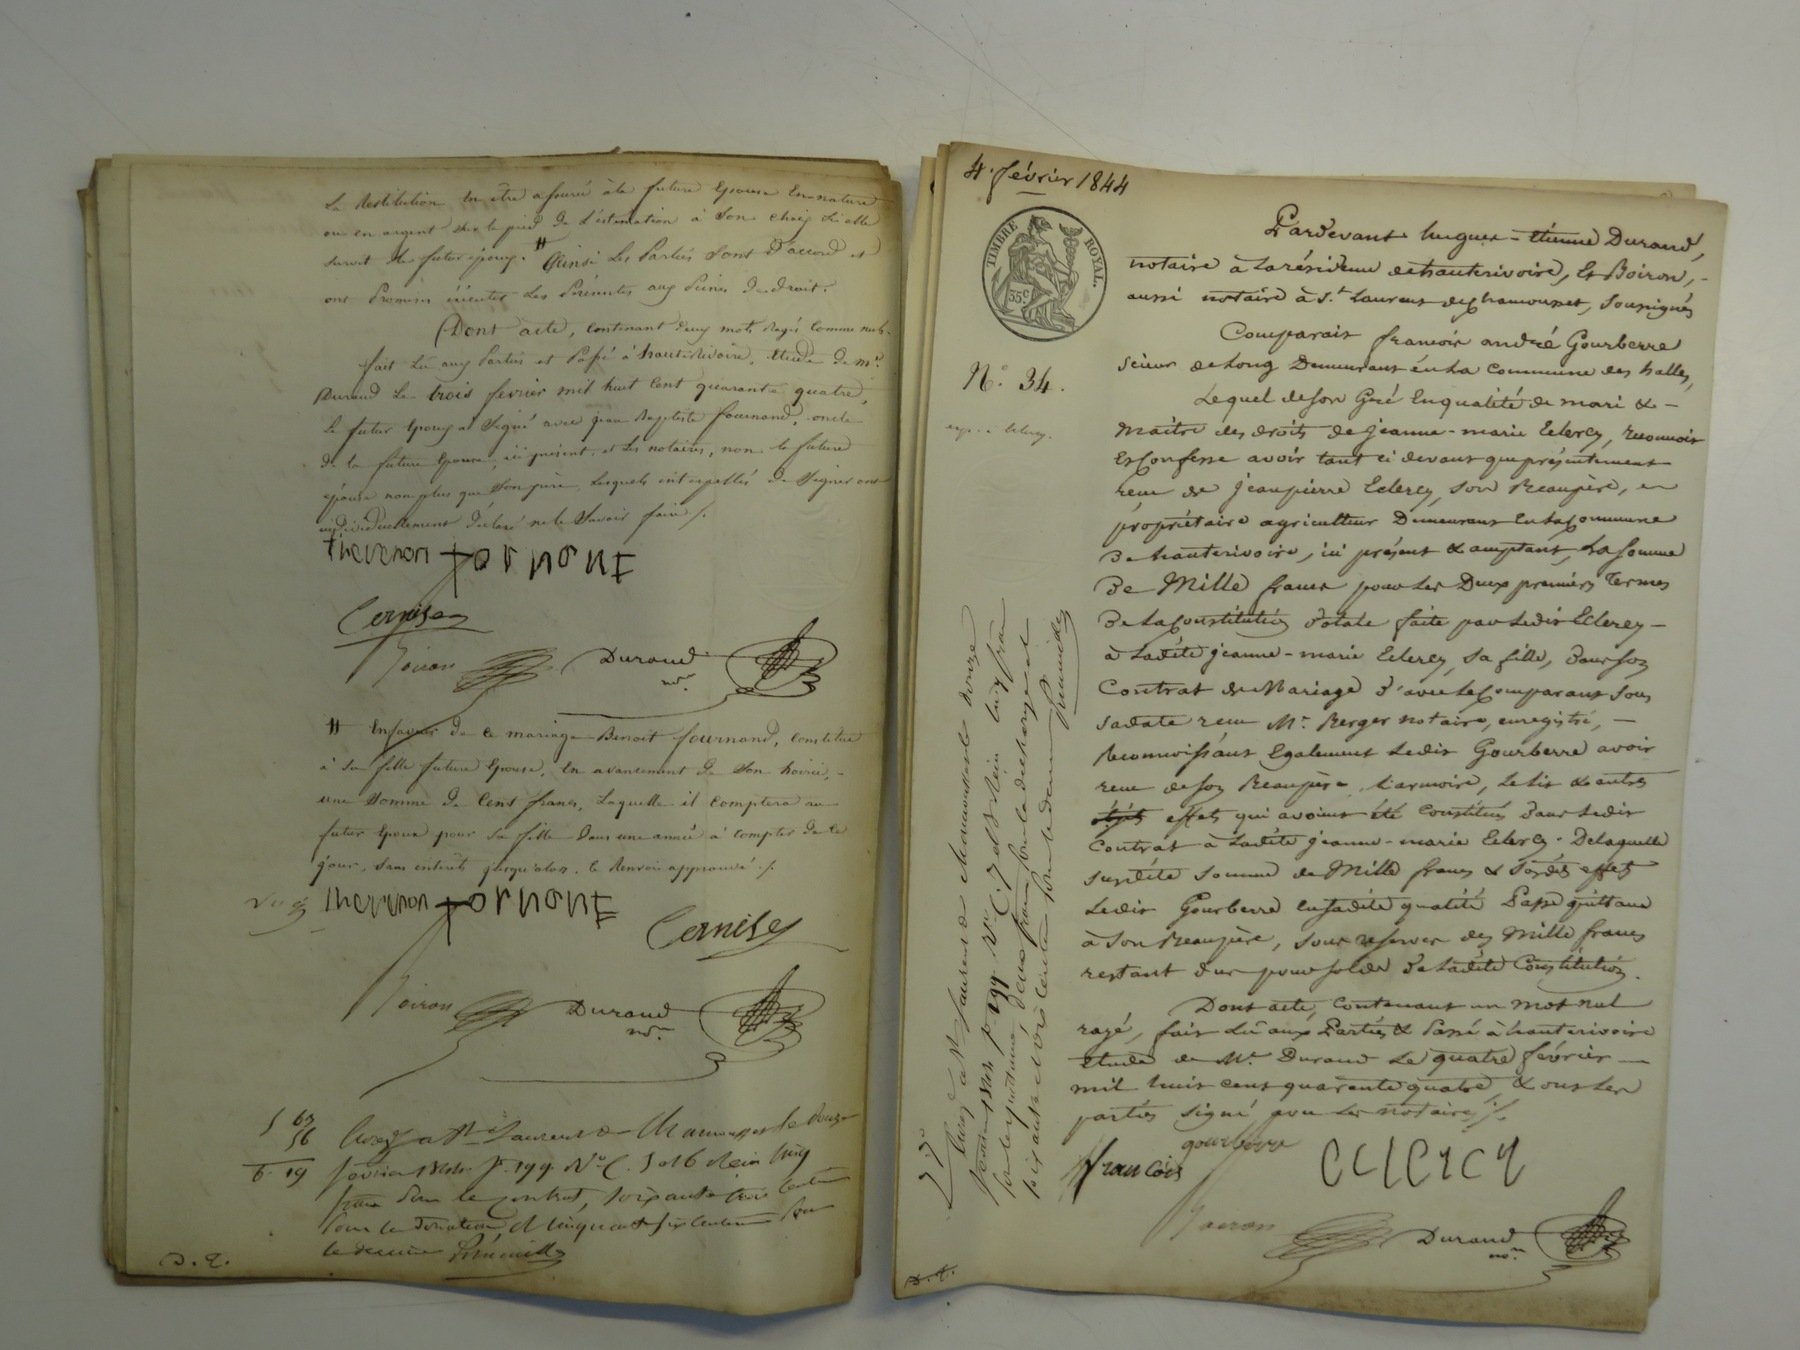 la Restitution en être assurée à la future Epouse En nature
ou en argent sur le pied de l'estimation à son choix si elle
survit le futur époux. # Ainsi les Parties sont d'accord et
ont Promis exécuter les Présentes aux Peines de droit.
Dont acte, contenant deux mots rayés comme nuls.
fait lu aux Parties et Passé à hauterivoire, étude de me.
Durand Le trois fevrier mil huit Cent quarante quatre,
le futur époux a Signé avec jean Baptiste fournand, oncle
de la future Epouse, ici présent, et les notaires, non la future
épouse non plus que Son père, Lesquels interpellés de Signer ont
individuellement déclaré ne le Savoir faire ./.
thevenon fornont
Cernisey
Boiron Durand
nore
# En faveur de ce mariage Benoit fournand, constitue
à sa fille future Epouse, En avancement de Son hoirie, -
une Somme de Cent francs, Laquelle il comptera au
futur Epoux pour sa fille Dans une année à compter de ce
jour, Sans intérêts jusqu'alors. le Renvoi approuvé ./.
thevenon fornont
Cernisey
Boiron Durand
nore
5 63
56
6. 19
Enregé a St Laurent de Chamousset le douze
février 1844 fo 199 Vo C. 5 et 6 Reçu Cinq
francs Pour le Contrat, soixante trois Centimes
Pour la Donation et Cinquante six Centimes Pour
le decime
D. E.
4. février 1844
TIMBRE ROYAL.
35c
No. 34.
Pardevant hugues-étienne Durand,
notaire à La résidence de hauterivoire, Et Boiron, -
aussi notaire à St. Laurent de Chamousset, Soussignés
Comparait françois andré Gourberre
scieur de Long Demeurant en La Commune des halles,
Lequel de son Gré En qualité de mari & -
maître des droits de jeanne-marie Eclercy, reconnoit
Et Confesse avoir tant ci devant que présentement
reçu de jean pierre Eclercy, son Beaupère,
propriétaire agriculteur Demeurant En La Commune
de hauterivoire, ici présent & acceptant, La Somme
De Mille francs pour Les Deux premiers Termes
De La Constitution dotale faite par Ledit Eclercy -
à Ladite jeanne-marie Eclercy, sa fille, dans son
Contrat de Mariage d'avec Le Comparant sous
sa date reçu Me. Berger notaire, enregistré, -
Reconnoissant Egalement Ledit Gourberre avoir
reçu de son Beaupère L'armoire, Le Lit & autres
objets effets qui avoient été Constitués Dans Ledit
Contrat à Ladite jeanne-marie Eclercy. De laquelle
susdite somme de Mille francs & desdits effets
Ledit Gourberre en sadite qualité Passe quittance
à Son Beaupère, sous réserves des Mille francs
restant dus pour solde de Ladite Constitution.
Dont acte, Contenant un mot nul
rayé, fait Lu aux Parties & Passé à hauterivoire
étude de Me. Durand Le quatre février -
mil huit cent quarante quatre, & ont Les
parties signé avec Les notaires ./.
gourberre
francois
CCLERCY
Boiron Durand
nore
Enregé à St Laurent de Chamousset le douze
février 1844 fo 199 Vo C. 7 et 8 Reçu Cinq francs
Pour la quittance, deux francs Pour la decharge et
soixante et dix Centimes Pour le decime